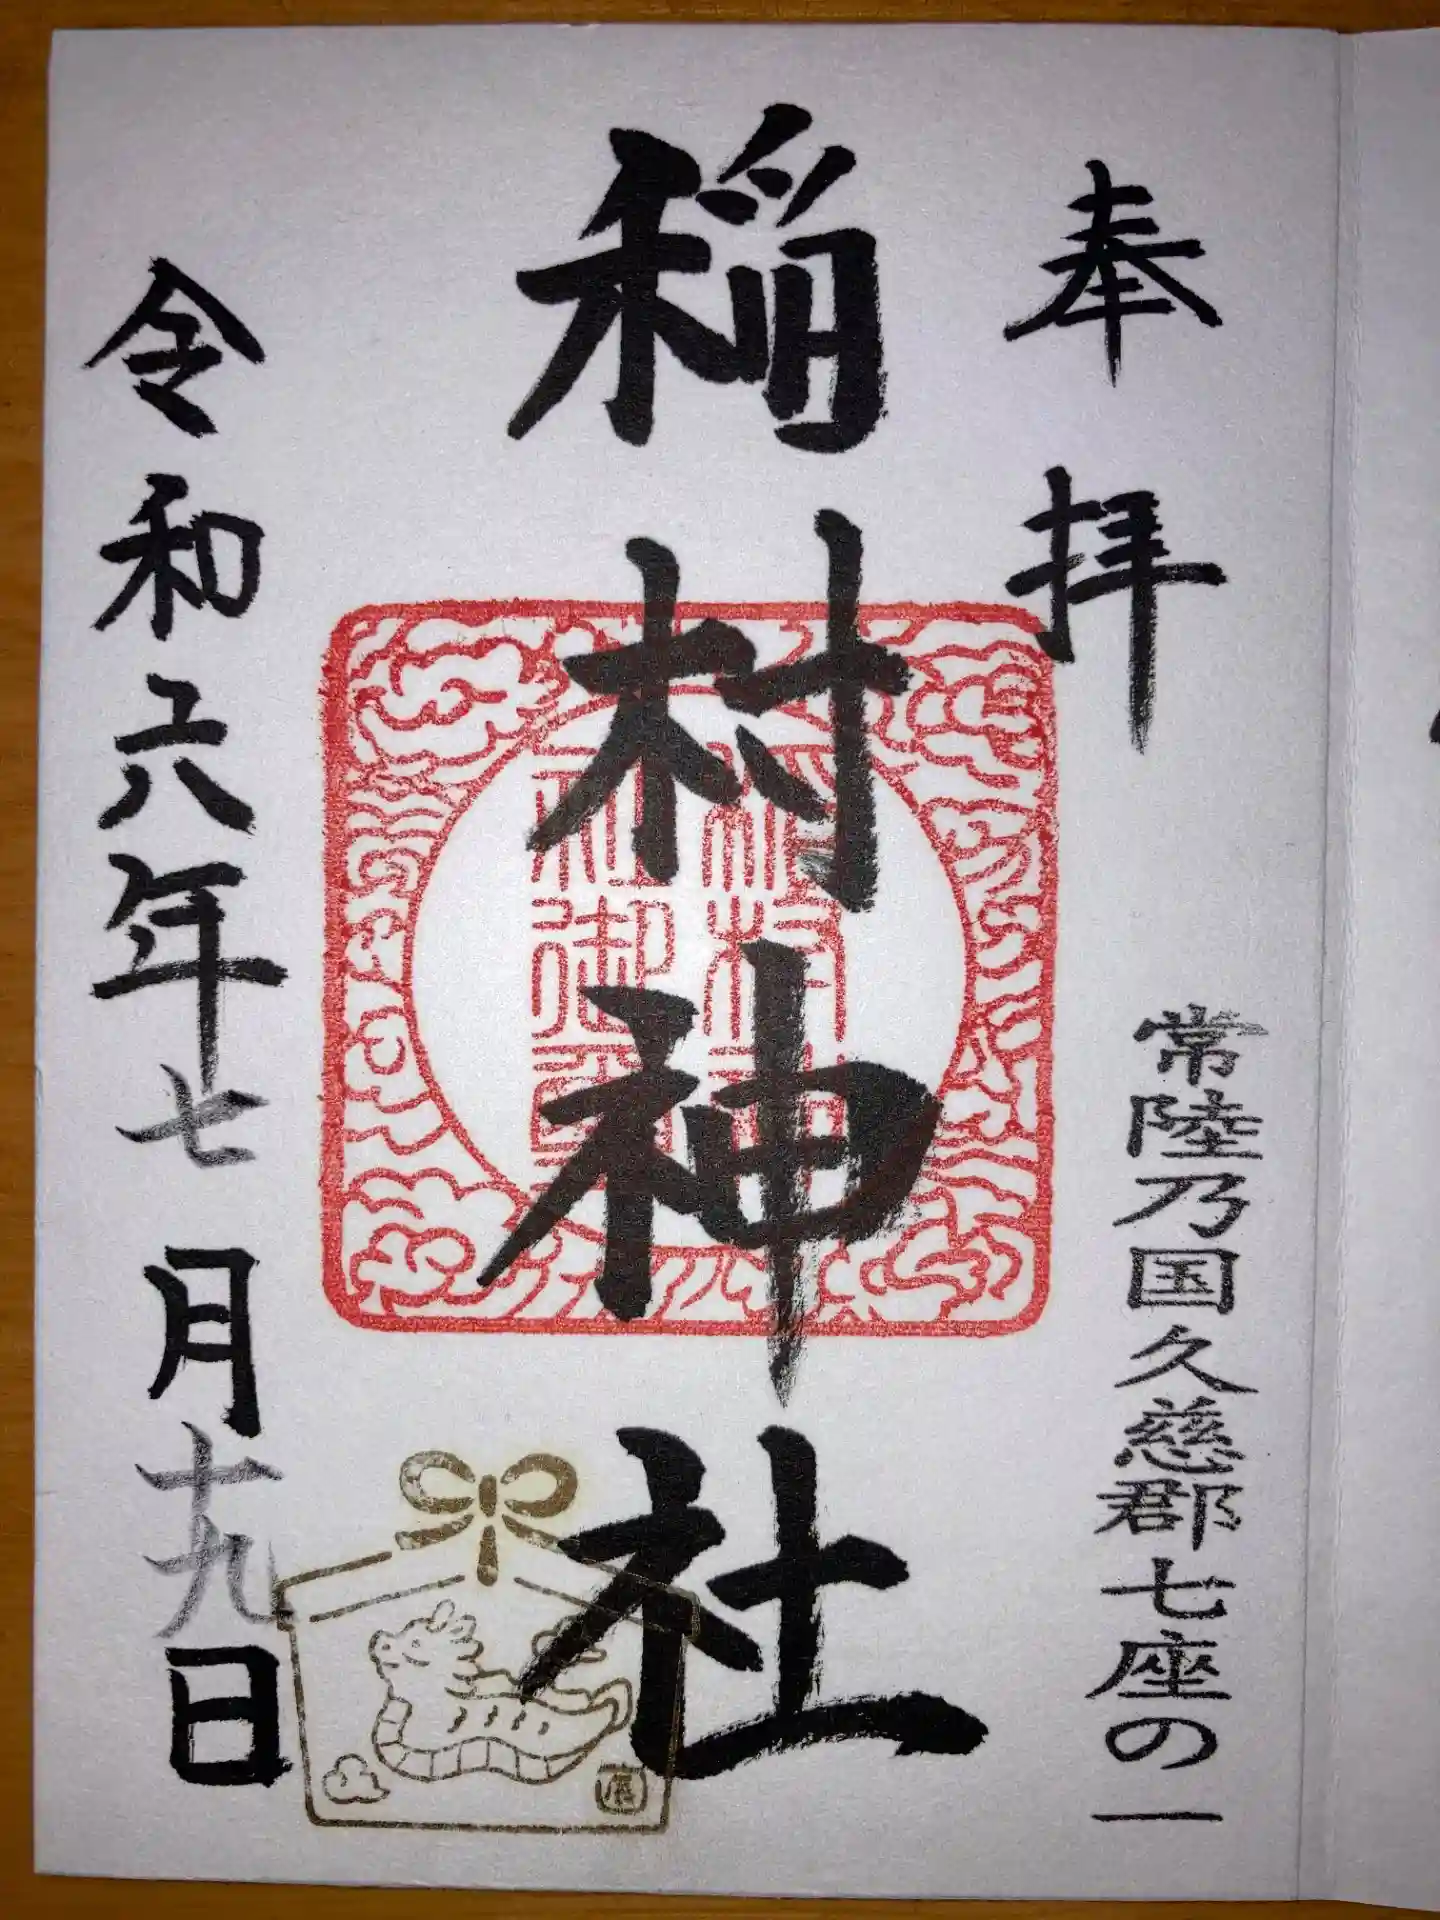 奉拝
常陸乃国久慈郡七座の一
稲村神社
令和六年七月十九日
辰